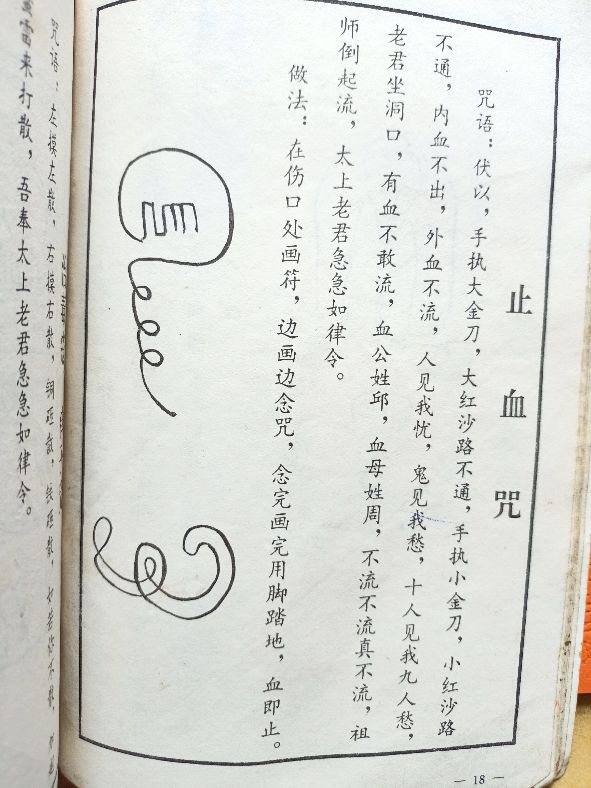 止血咒
咒语：伏以，手执大金刀，大红沙路不通，手执小金刀，小红沙路
不通，内血不出，外血不流，人见我忧，鬼见我愁，十人见我九人愁，
老君坐洞口，有血不敢流，血公姓邱，血母姓周，不流不流真不流，祖
师倒起流，太上老君急急如律令。
做法：在伤口处画符，边画边念咒，念完画完用脚踏地，血即止。
— 18 —
咒语：左摸左散，右摸右散，
雷来打散，吾奉太上老君急急如律令。